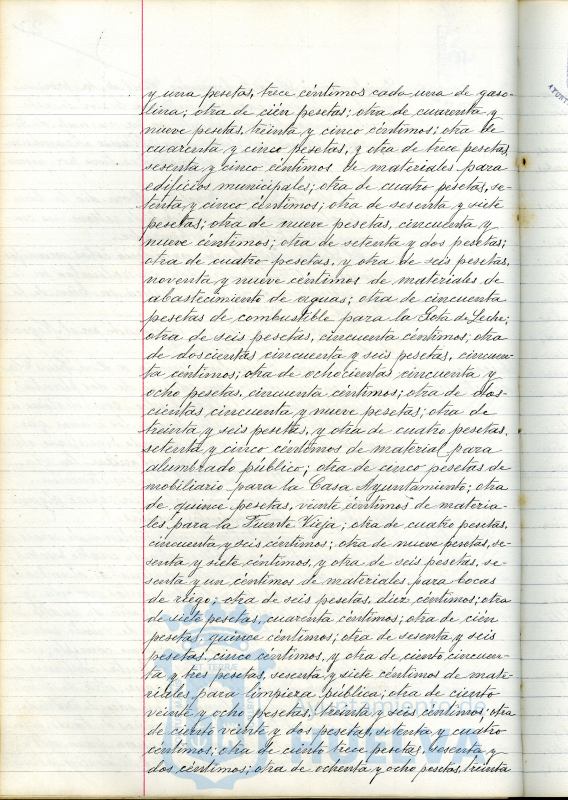 y una pesetas, trece céntimos cada una de gaso-
lina; otra de cién pesetas; otra de cuarenta y
nueve pesetas, treinta y cinco céntimos; otra de
cuarenta y cinco pesetas, y otra de trece pesetas,
sesenta y cinco céntimos de materiales para
edificios municipales; otra de cuatro pesetas, se-
tenta y cinco céntimos; otra de sesenta y siete
pesetas; otra de nueve pesetas, cincuenta y
nueve céntimos; otra de setenta y dos pesetas;
otra de cuatro pesetas, y otra de seis pesetas,
noventa y nueve céntimos de materiales de
abastecimiento de aguas; otra de cincuenta
pesetas de combustible para la Gota de Leche;
otra de seis pesetas, cincuenta céntimos; otra
de doscientas cincuenta y seis pesetas, cincuen-
ta céntimos; otra de ochocientas cincuenta y
ocho pesetas, cincuenta céntimos; otra de dos-
cientas cincuenta y nueve pesetas; otra de
treinta y seis pesetas, y otra de cuatro pesetas,
setenta y cinco céntimos de material para
alumbrado público; otra de cinco pesetas de
mobiliario para la Casa Ayuntamiento; otra
de quince pesetas, veinte céntimos de materia-
les para la Fuente Vieja; otra de cuatro pesetas,
cincuenta y seis céntimos; otra de nueve pesetas, se-
senta y siete céntimos, y otra de seis pesetas, se-
senta y un céntimos de materiales para bocas
de riego; otra de seis pesetas, diez céntimos; otra
de siete pesetas, cuarenta céntimos; otra de cién
pesetas, quince céntimos; otra de sesenta y seis
pesetas, cinco céntimos, y otra de ciento cincuen-
ta y tres pesetas, sesenta y siete céntimos de mate-
riales para limpieza pública; otra de ciento
veinte y ocho pesetas, treinta y seis céntimos; otra
de ciento veinte y dos pesetas, setenta y cuatro
céntimos; otra de ciento trece pesetas, sesenta y
dos céntimos; otra de ochenta y ocho pesetas, treinta
Ayuntamiento de
HUELVA